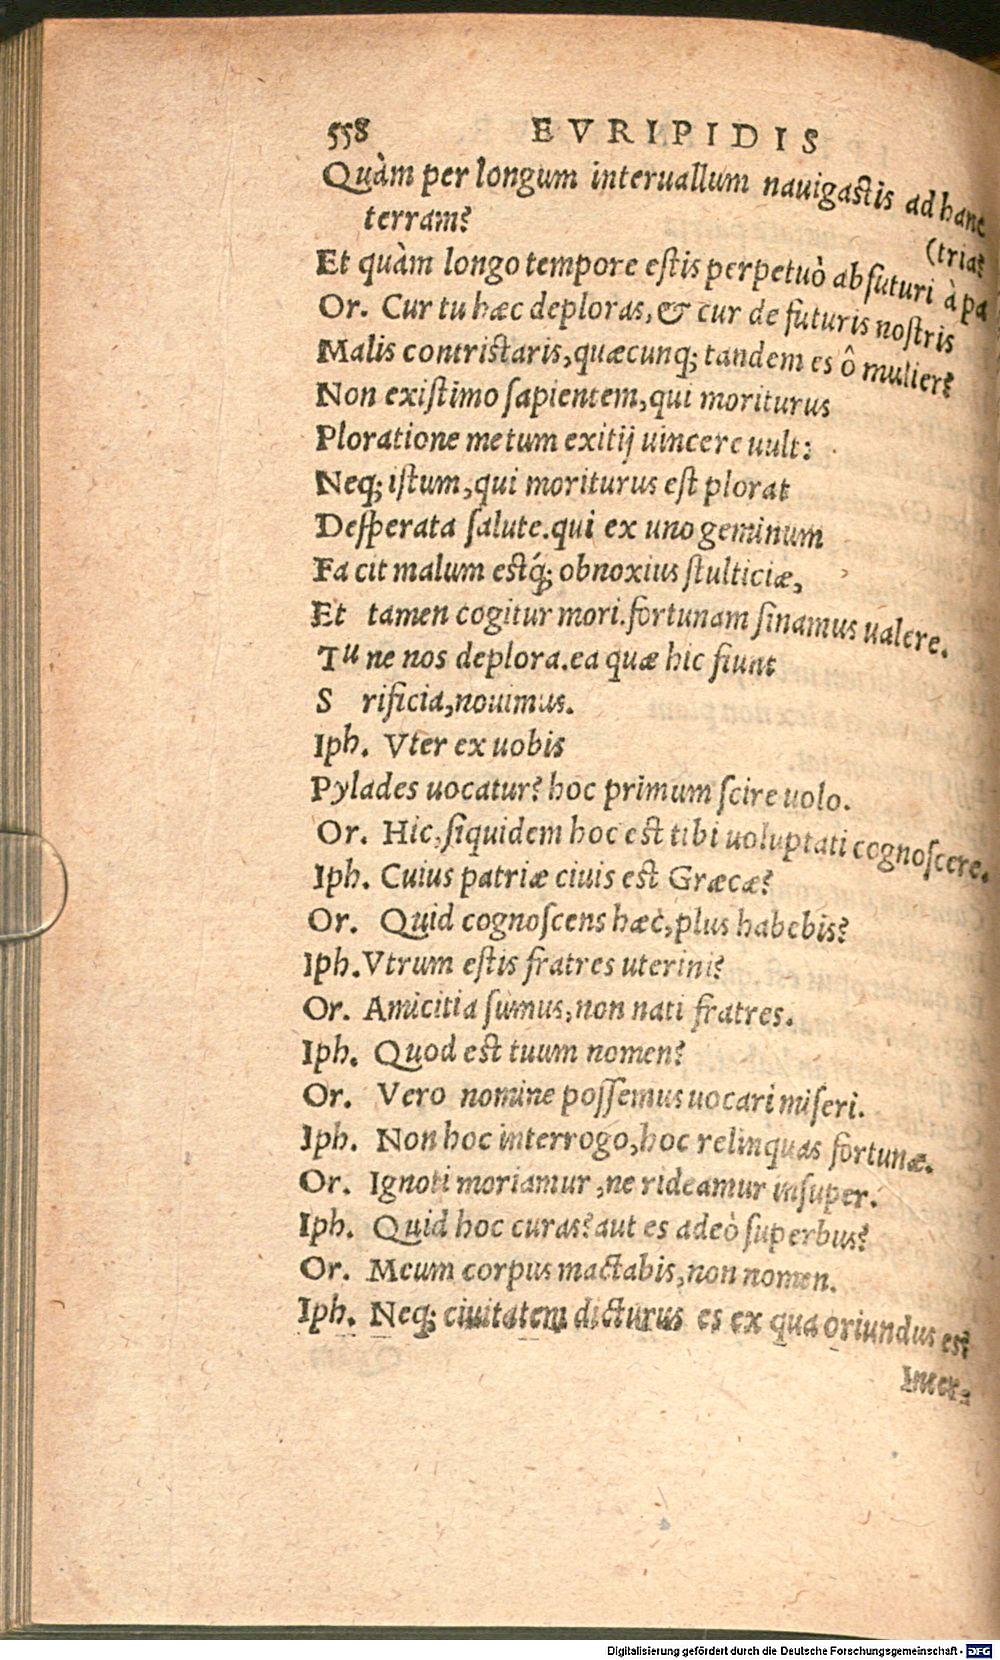 558 EVRIPIDIS
Quàm per longum interuallum nauigastis ad hanc
terram?
(tria?
Et quàm longo tempore estis perpetuò abfuturi à pa
Or. Cur tu hæc deploras, & cur de futuris nostris
Malis contristaris, quæcunq; tandem es ô mulier?
Non existimo sapientem, qui moriturus
Ploratione metum exitij uincere uult:
Neq; istum, qui moriturus est plorat
Desperata salute. qui ex uno geminum
Fa cit malum estq́; obnoxius stulticiæ,
Et tamen cogitur mori. fortunam sinamus ualere.
Tu ne nos deplora. ea quæ hic fiunt
S rificia, nouimus.
Iph. Vter ex uobis
Pylades uocatur? hoc primum scire uolo.
Or. Hic, siquidem hoc est tibi uoluptati cognoscere.
Iph. Cuius patriæ ciuis est Græcæ?
Or. Quid cognoscens hæc, plus habebis?
Iph. Vtrum estis fratres uterini?
Or. Amicitia sumus, non nati fratres.
Iph. Quod est tuum nomen?
Or. Vero nomine possemus uocari miseri.
Iph. Non hoc interrogo, hoc relinquas fortunæ.
Or. Ignoti moriamur, ne rideamur insuper.
Iph. Quid hoc curas? aut es adeò superbus?
Or. Meum corpus mactabis, non nomen.
Iph. Neq; ciuitatem dicturus es ex qua oriundus es?
Digitalisierung gefördert durch die Deutsche Forschungsgemeinschaft - DFG